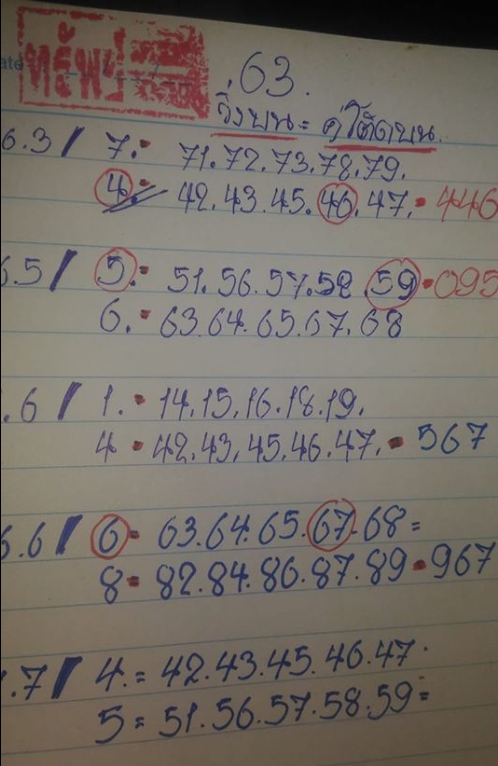 ate
ทรัพย์
.63.
วิ่งบน = คู่โต๊ดบน.
6.3/ 7.- 71.72.73.78.79.
4- 42.43.45.46.47.-446
6.5/ 5.- 51.56.57.58.59-095
6.- 63.64.65.67.68
.6/ 1.- 14.15.16.18.19.
4- 42.43.45.46.47.-567
6.6/ 6- 63.64.65.67.68=
8- 82.84.86.87.89-967
.7/ 4.= 42.43.45.46.47.
5= 51.56.57.58.59=